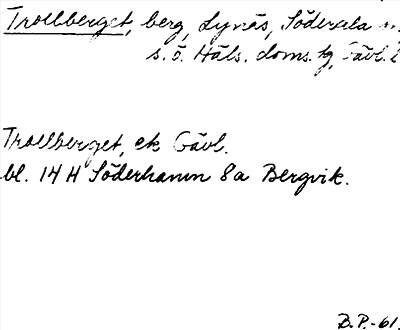 Trollberget, berg, Lynäs, Söderala
s. ö. Häls. doms. tg, Gävl.
Trollberget, ek Gävl.
bl. 14 H Söderhamn 8a Bergvik.
B.P.-61.